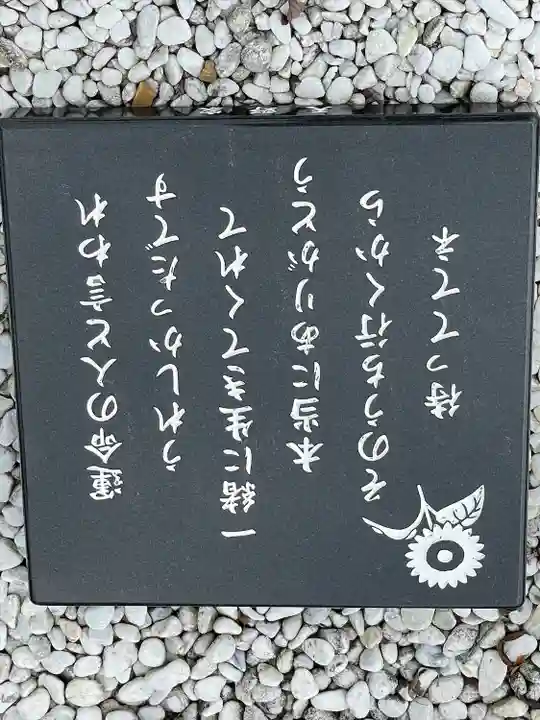 運命の人と言われ
うれしかったです
一緒に生きてくれて
本当にありがとう
そのうち行くから
待っててネ